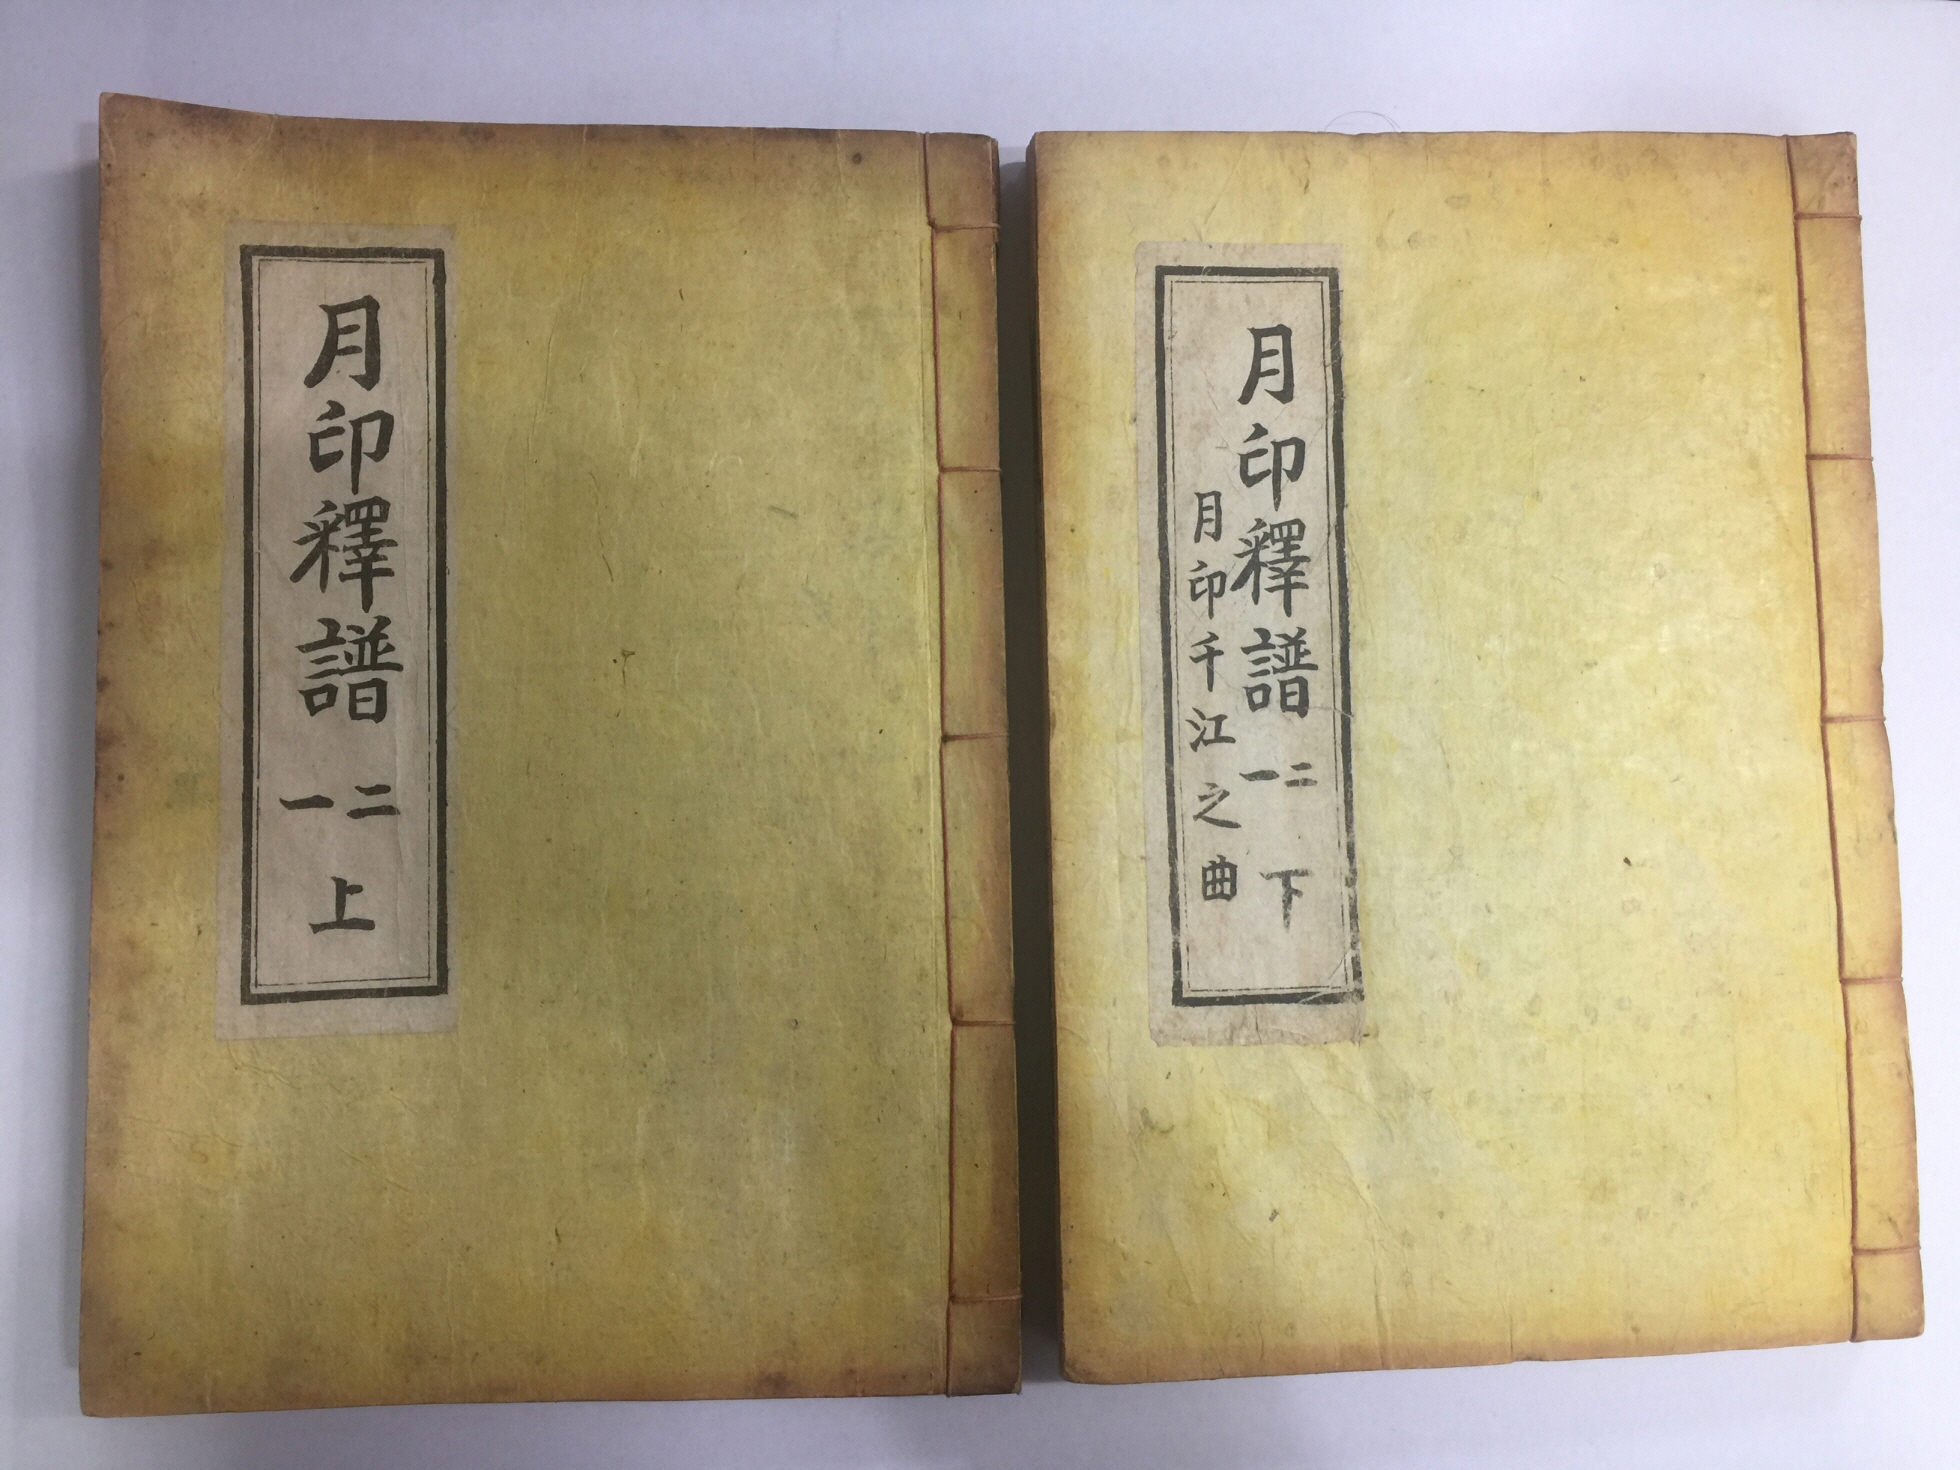 月印釋譜
二一
上
月印釋譜
二一
下
月印千江之曲